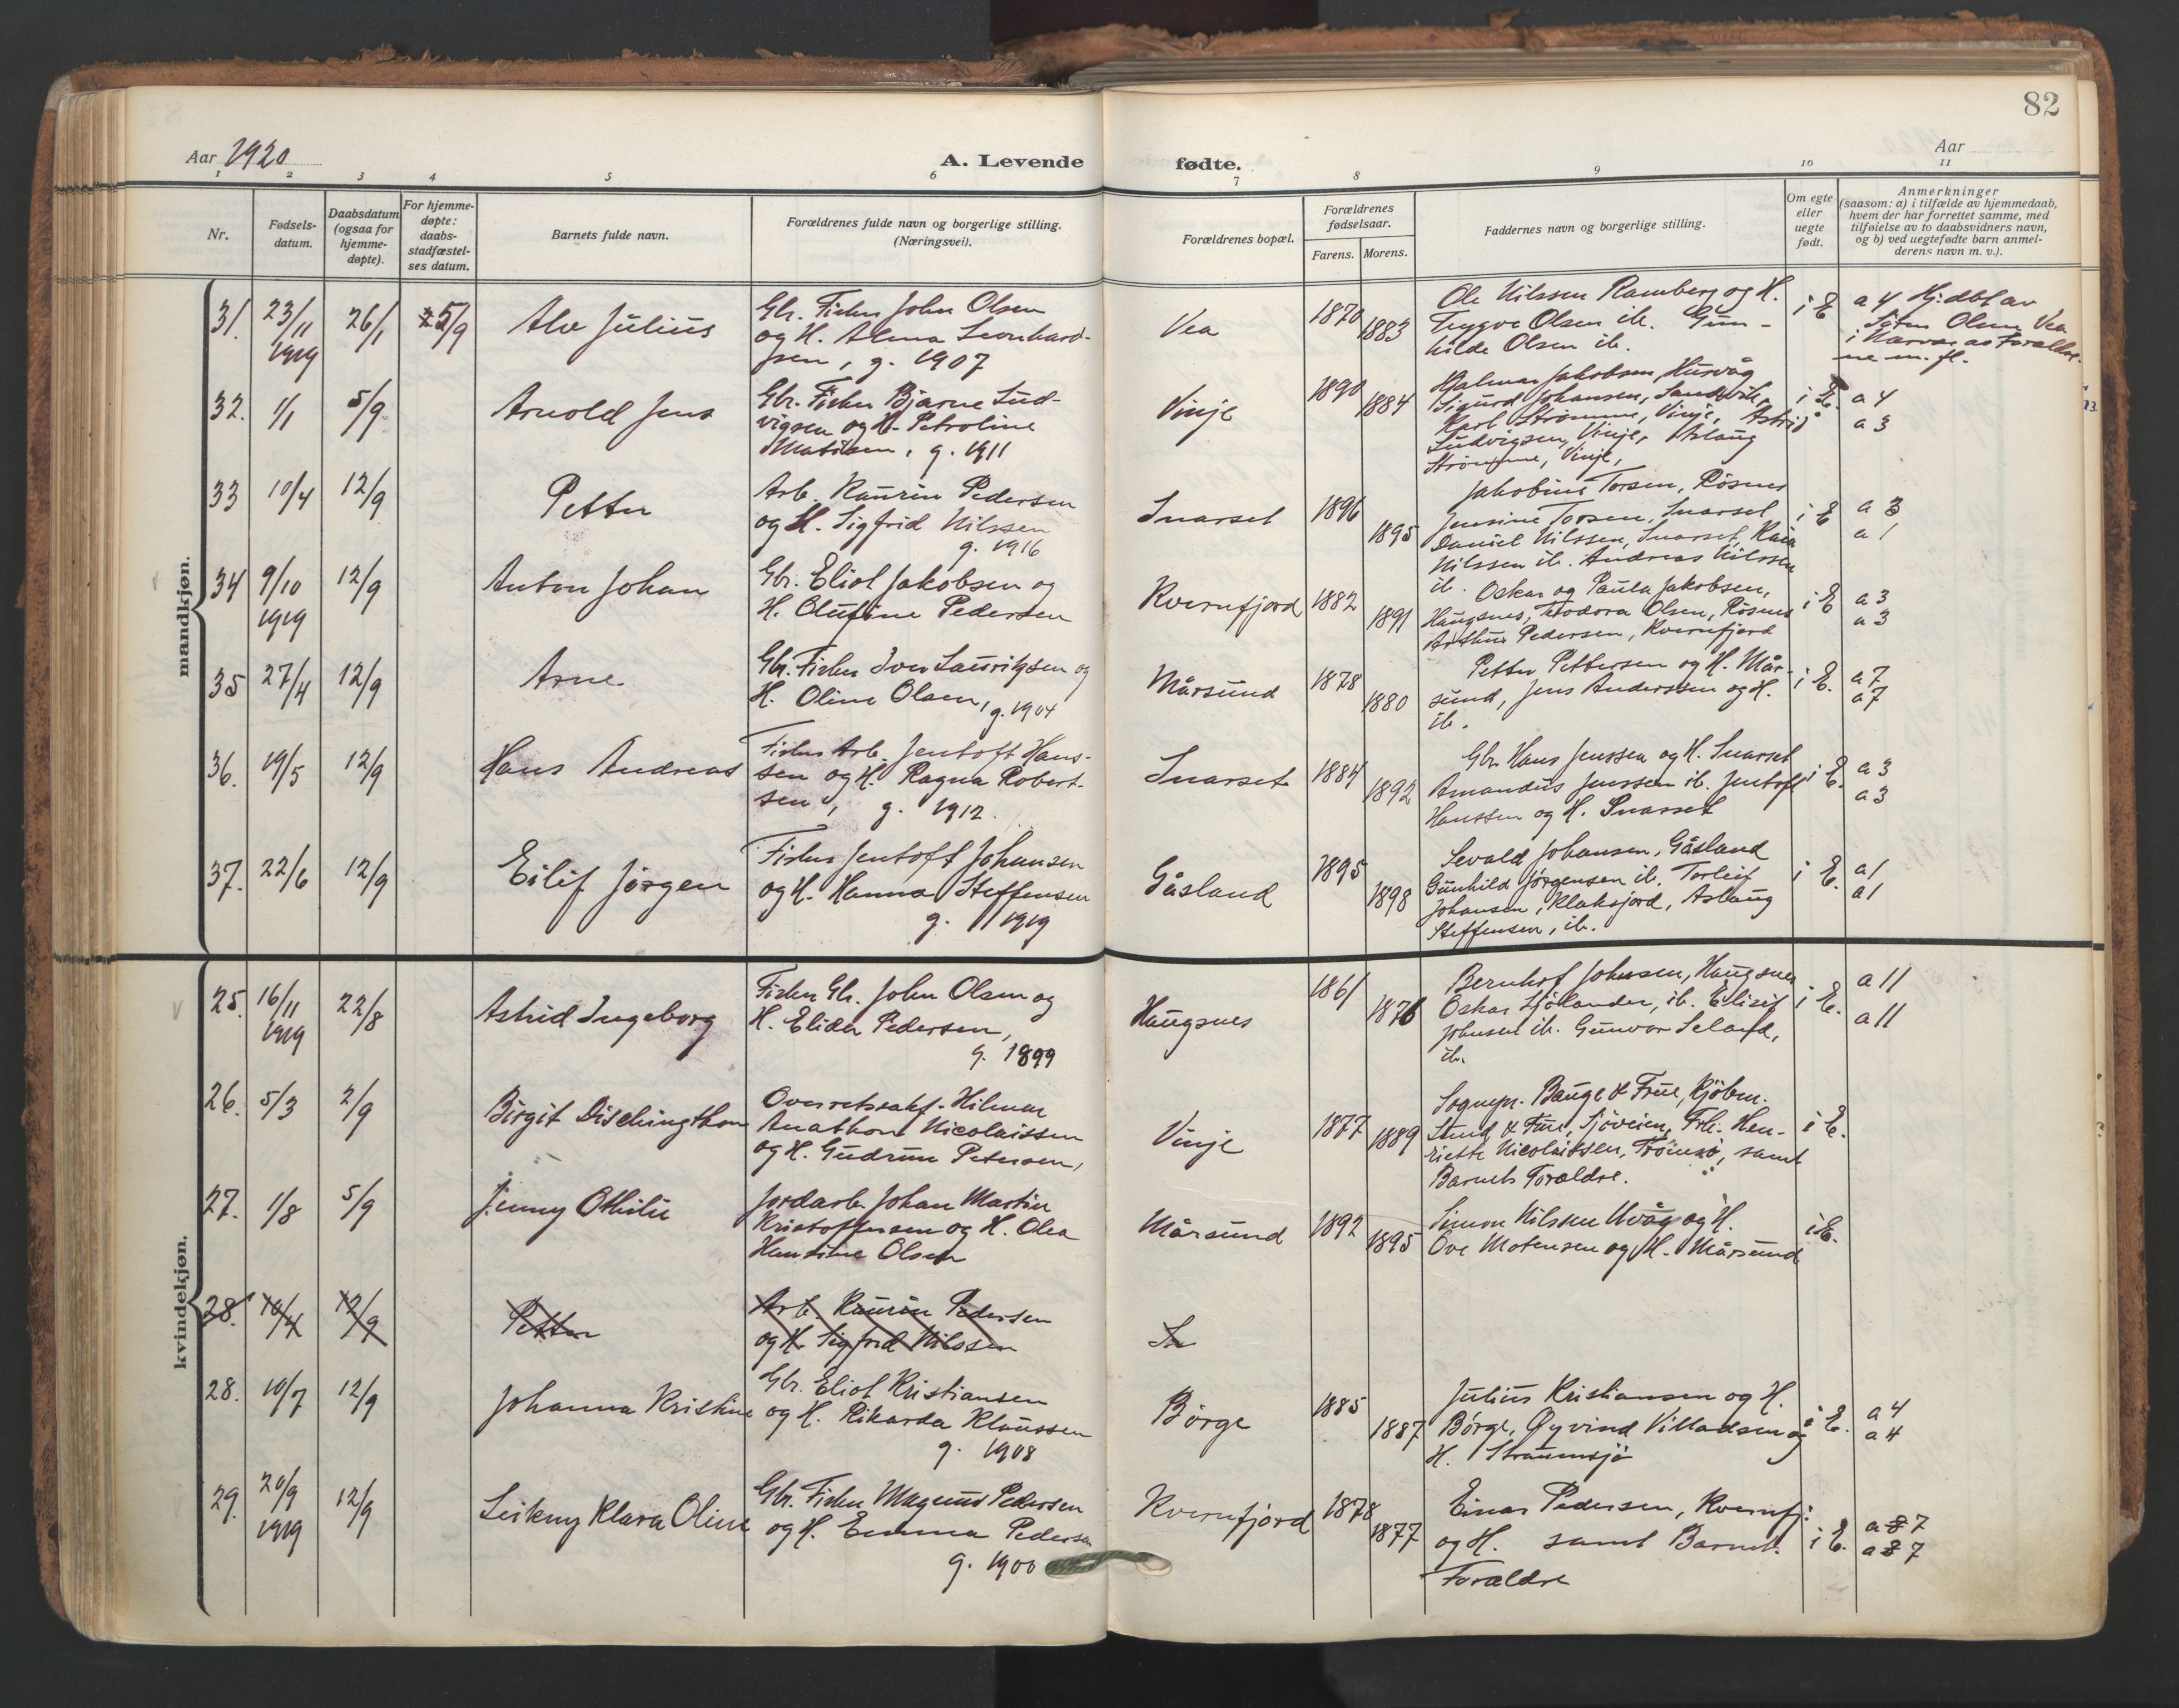 82
Aar 1920
A. Levende
fødte.
Aar
1 2 3 4 5 6 7 8 9 10 11
Nr.
Fødsels-
datum.
Daabsdatum
(ogsaa for
hjemme-
døpte).
For hjemme-
døpte:
daabs-
stadfæstel-
ses datum.
Barnets fulde navn.
Forældrenes fulde navn og borgerlige stilling.
(Næringsvei).
Forældrenes bopæl.
Forældrenes
fødselsaar.
Farens. Morens.
Faddernes navn og borgerlige stilling.
Om egte
eller
uegte
født.
Anmerkninger
(saasom: a) i tilfælde av hjemmedaab,
hvem der har forrettet samme, med
tilføielse av to daabsvidners navn,
og b) ved uegtefødte barn anmel-
derens navn m. v.).
mandkjøn.
31. 23/11 1919
26/1
5/9
Alv Julius
Gbr. Fisker John Olsen
og H. Alma Leonhard-
sen, g. 1907
Vea
1870 1883
Ole Nilssen Ramberg og H.
Trygve Olsen ib. Gun-
hilde Olsen ib.
i E
a 4 Hj.dbt av
Olsen Vea
i Nærvær av Forældre-
ne m. fl.
32. 1/1
5/9
Arnold Jens
Gbr. Fisker Bjarne Lud-
vigsen og H. Petroline
g. 1911
Vinje
1890 1884
Hjalmar Jakobsen, Husvåg
Sigurd Johansen, Sandvik,
Karl Strømme, Vinje, Astrid
Ludvigsen, Vinje, Aslaug
Strømme, Vinje,
i E.
a 4
a 3
33 10/4
12/9
Petter
Arb. Kaurin Pedersen
og H. Sigfrid Nilssen
g. 1916
Snarset
1896 1895
Jakobine Torsen, Røsnes
Jensine Torsen, Snarset
Daniel Nilssen, Snarset, Kaia
Nilssen ib. Andreas Nilssen
ib.
i E
a 3
a 1
34 9/10 1919
12/9
Anton Johan
Gbr. Eliot Jakobsen og
H. Olufine Pedersen
Kvernfjord
1882 1891
Oskar og Paula Jakobsen,
Haugsnes, Teodora Olsen, Røsnes
Arthur Pedersen, Kvernfjord
i E
a 3
a 3
35 27/4
12/9
Arne
Gbr. Fisker Iver Lauritzsen og
H. Oline Olsen, g. 1904
Mårsund
1878 1880
Petter Pettersen og H. Mår-
sund, Jens Anderssen og H.
ib.
i E.
a 7
a 7
36. 19/5
12/9
Hans Andreas
Fisker Arb. Jentoft Hans-
sen og H. Ragna Robert-
sen, g. 1912.
Snarset
1884 1892
Gbr. Hans Jenssen og H. Snarset
Amandus Jenssen ib. Jentoft
Hanssen og H. Snarset
i E.
a 3
a 3
37. 22/6
12/9
Eilif Jørgen
Fisker Jentoft Johansen
og H. Hanna Steffensen
g. 1919
Gåsland
1895 1898
Sevald Johansen, Gåsland
Gunhild Jørgensen ib. Torleif
Johansen, Klaksjord, Aslaug
Steffensen, ib.
i E.
a 1
a 1
kvindekjøn.
25. 16/11 1919
22/8
Astrid Ingeborg
Fisker Gbr. John Olsen og
H. Elida Pedersen,
g. 1899
Haugsnes
1861 1876
Bernhof Johnsen, Haugsnes
Oskar Sjölander, ib. Elisif
Johnsen ib. Gunvor Seland,
ib.
i E.
a 11
a 11
26. 5/3
2/9
Birgit Dischingthon
Overretssakf. Hilmar
Anathon Nicolaissen
og H. Gudrun Petersen,
Vinje
1877 1889
Sognepr. Bauge & Frue, Kjöbm.
Stend & Frue, Sjöveien, Frk. Hen-
riette Nicolaissen, Tromsö, samt
Barnets Forældre.
i E.
27. 1/8
5/9
Jenny Othilie
Jordarb. Johan Martin
Kristoffersen og H. Olea
Hansine Olsen
Mårsund
1892 1895
Simon Nilssen Uvåg og H.
Ove Motensen og H. Mårsund
i E.
28. 10/4
12/9
Petter
Arb. Kaurin Pedersen
og H. Sigfrid Nilssen
Sn
28. 10/7
12/9
Johanna Kristine
Gbr. Eliot Kristiansen
og H. Rikarda Klaussen
g. 1908
Børge
1885 1887
Julius Kristiansen og H.
Børge, Øyvind Villadsen og
H. Straumsjö
i E.
a 4
a 4
29. 20/9 1919
12/9
Leikny Klara Oline
Gbr. Fisker Magnus Pedersen
og H. Emma Pedersen
g. 1900
Kvernfjord
1878 1877
Einar Pedersen, Kvernfj:
og H. samt Barnets
Forældre
i E.
a 8 7
a 8 7